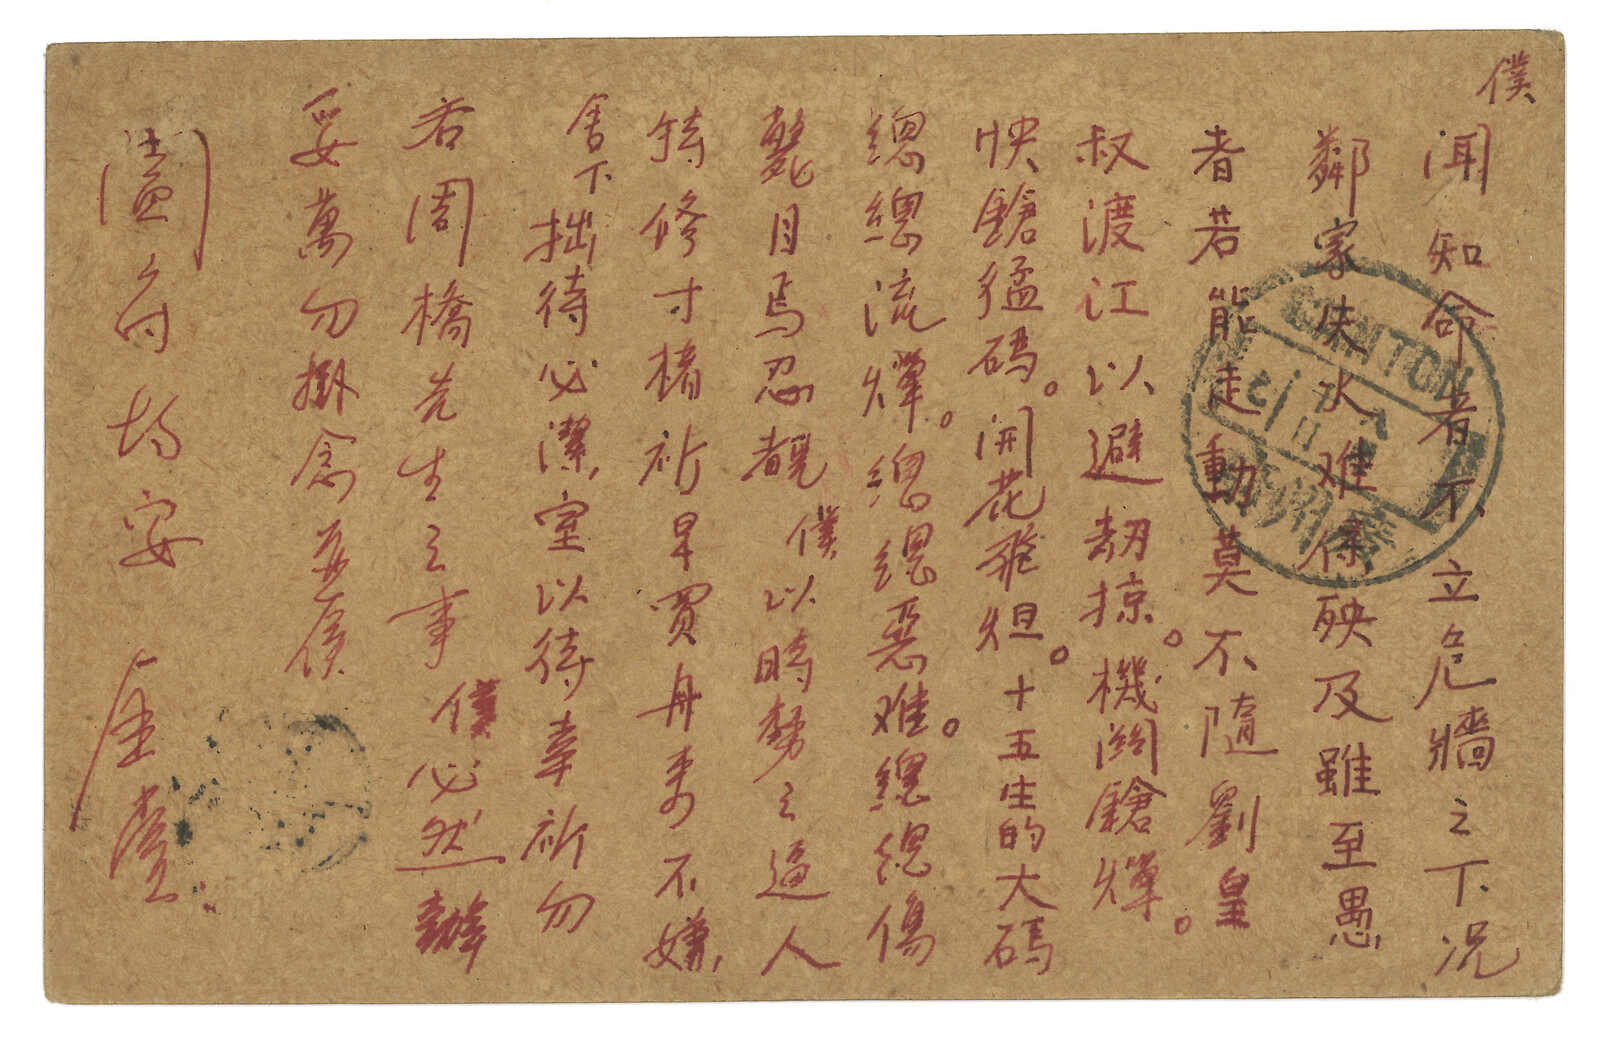 僕
聞知命者不立危牆之下况
鄰家失火难保殃及雖至愚
者若能走動莫不隨劉皇
叔渡江以避劫掠。機関鎗燀。
快鎗猛码。開花飛炟。十五生的大码
總總流燀。總總惡难。總總傷
斃目焉忍覩僕以時勢之逼人
特修寸楮祈早買舟来不嫌
舍下拙待必潔室以待幸祈勿
右周橋先生之事僕必然辦
妥萬勿掛念並候
闔府均安
CANTON
廣州